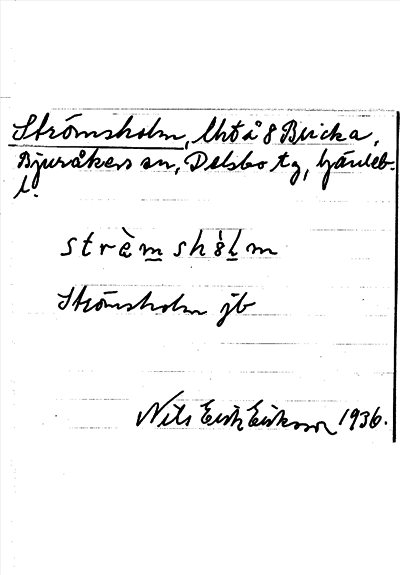 Strömsholm, lht å 8 Bricka,
Bjuråkers sn, Delsbo tg, Gävleb.
l.
strömshòlm
Strömsholm jb
Nils Erik Eriksson 1936.